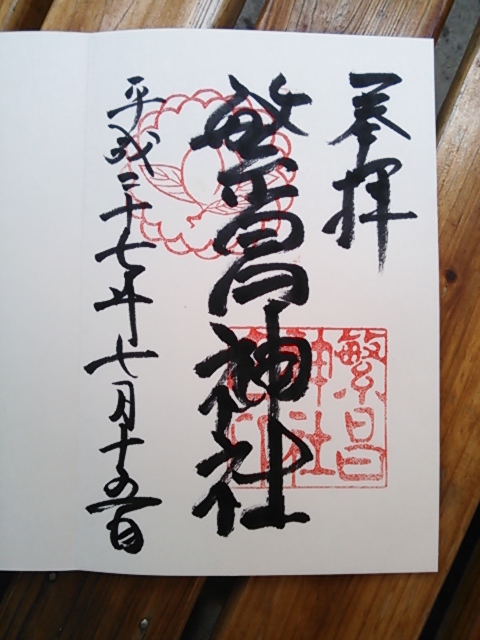 奉拝
繁昌神社
繁昌
神社
平成二十七年七月十五日